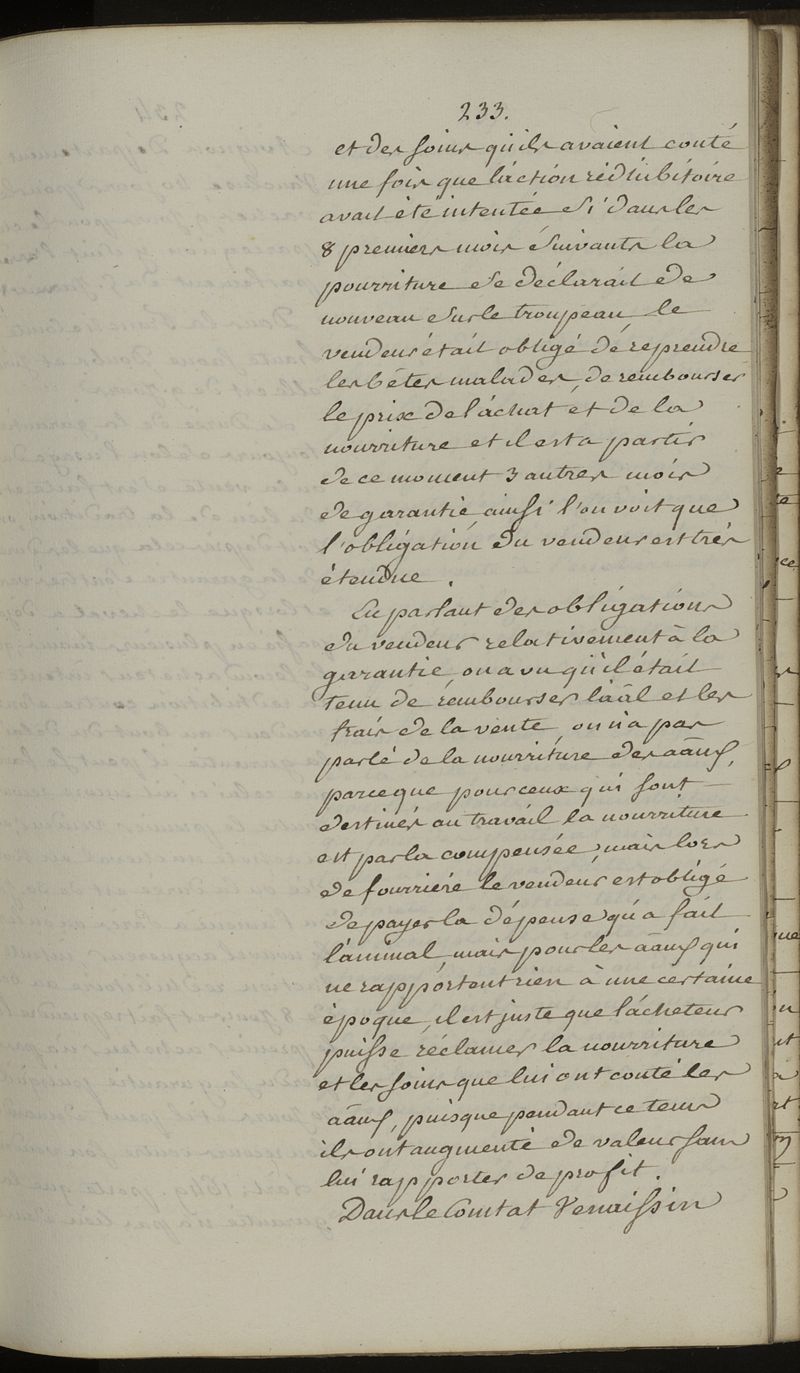 233.
et des soins qu'ils avaient couté
une fois que l'action rédhibitoire
avait été intentée si dans les
8 premiers mois suivants la
pourriture se déclarait de
nouveau sur le troupeau, le
vendeur était obligé de reprendre
les bêtes malades, de rembourser
le prix de l'achat et de la
nourriture et il est a partir
de ce moment 3 autres mois
de garantie ainsi l'on voit que
l'obligation du vendeur est très
étendue.
En parlant des obligations
du vendeur relativement à la
garantie on a vu qu'il était
tenu de rembourser l'aāl et les
frais de la vente, on n'a pas
parlé de la nourriture des aāux,
parceque pour ceux qui sont
destinés au travail la nourriture
est par la compensée, mais lors
de fourrière le vendeur est obligé
de payer la dépense qu'a fait
l'animal, mais pour les aāux qui
ne rapportent rien à une certaine
époque, il est juste que l'acheteur
puisse réclamer la nourriture
et les soins que lui ont couté les
aāux, puisque pendant ce tems
ils ont augmenté de valeur sans
lui rapporter de profit.
Dans le Comtat Venaissin